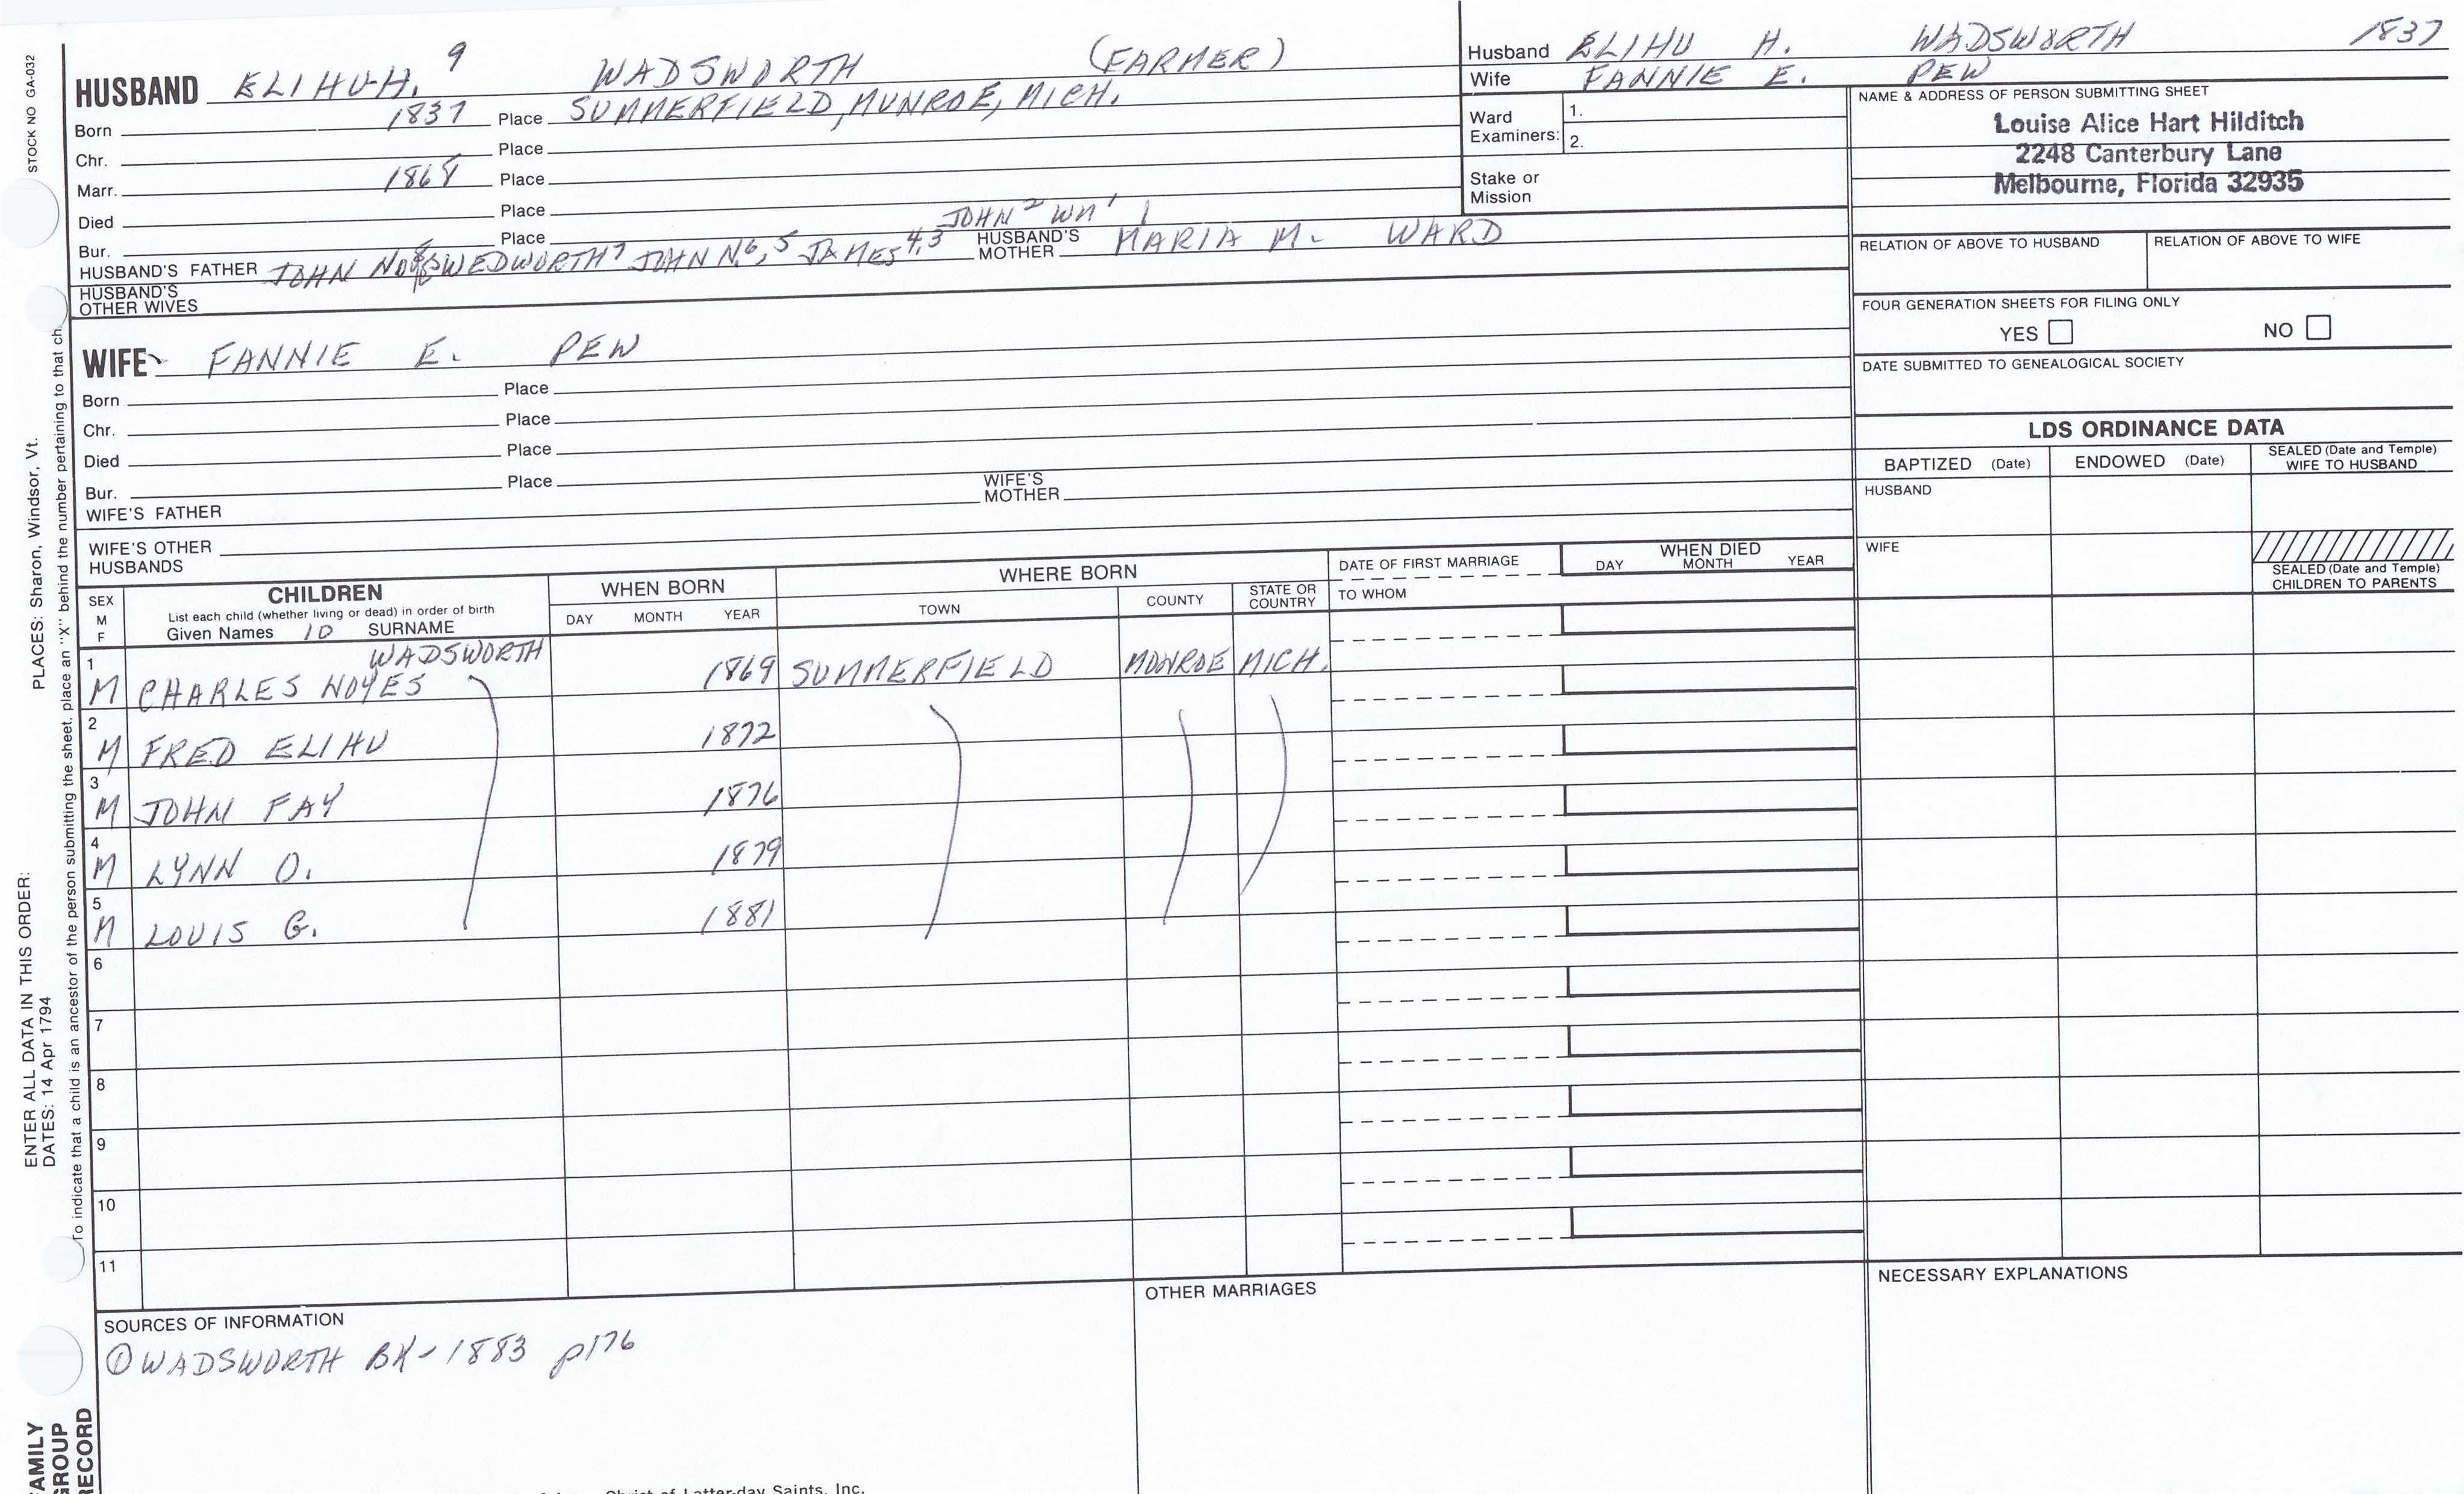 HUSBAND ELIHU H. 9 WADSWORTH (FARMER)
Born 1837 Place SUMMERFIELD, MUNROE, MICH.
Chr. Place
Marr. 1868 Place
Died Place
Bur. Place
JOHN 2 WM 1
HUSBAND'S FATHER JOHN WEDWORTH 7 JOHN N. 6, 5 JAMES 4, 3 HUSBAND'S MOTHER MARIA M. WARD
HUSBAND'S OTHER WIVES
WIFE FANNIE E. PEW
Born Place
Chr. Place
Died Place
Bur. Place
WIFE'S FATHER WIFE'S MOTHER
WIFE'S OTHER HUSBANDS
Husband ELIHU H. WADSWORTH 1837
Wife FANNIE E. PEW
Ward Examiners: 1.
2.
Stake or Mission
NAME & ADDRESS OF PERSON SUBMITTING SHEET
Louise Alice Hart Hilditch
2248 Canterbury Lane
Melbourne, Florida 32935
RELATION OF ABOVE TO HUSBAND RELATION OF ABOVE TO WIFE
FOUR GENERATION SHEETS FOR FILING ONLY
YES NO
DATE SUBMITTED TO GENEALOGICAL SOCIETY
LDS ORDINANCE DATA
BAPTIZED (Date) ENDOWED (Date) SEALED (Date and Temple) WIFE TO HUSBAND
HUSBAND
WIFE
SEALED (Date and Temple) CHILDREN TO PARENTS
SEX M F
CHILDREN
List each child (whether living or dead) in order of birth
Given Names 10 SURNAME
WHEN BORN
DAY MONTH YEAR
WHERE BORN
TOWN COUNTY STATE OR COUNTRY
DATE OF FIRST MARRIAGE
TO WHOM
WHEN DIED
DAY MONTH YEAR
WADSWORTH
1 M CHARLES NOYES 1869 SUMMERFIELD MONROE MICH.
2 M FRED ELIHU 1872
3 M JOHN FAY 1876
4 M LYNN O. 1879
5 M LOUIS G. 1881
6
7
8
9
10
11
SOURCES OF INFORMATION
① WADSWORTH BK - 1883 p176
OTHER MARRIAGES
NECESSARY EXPLANATIONS
STOCK NO GA-032
PLACES: Sharon, Windsor, Vt.
ENTER ALL DATA IN THIS ORDER:
DATES: 14 Apr 1794
To indicate that a child is an ancestor of the person submitting the sheet, place an "X" behind the number pertaining to that ch
FAMILY
GROUP
RECORD
Christ of Latter-day Saints, Inc.